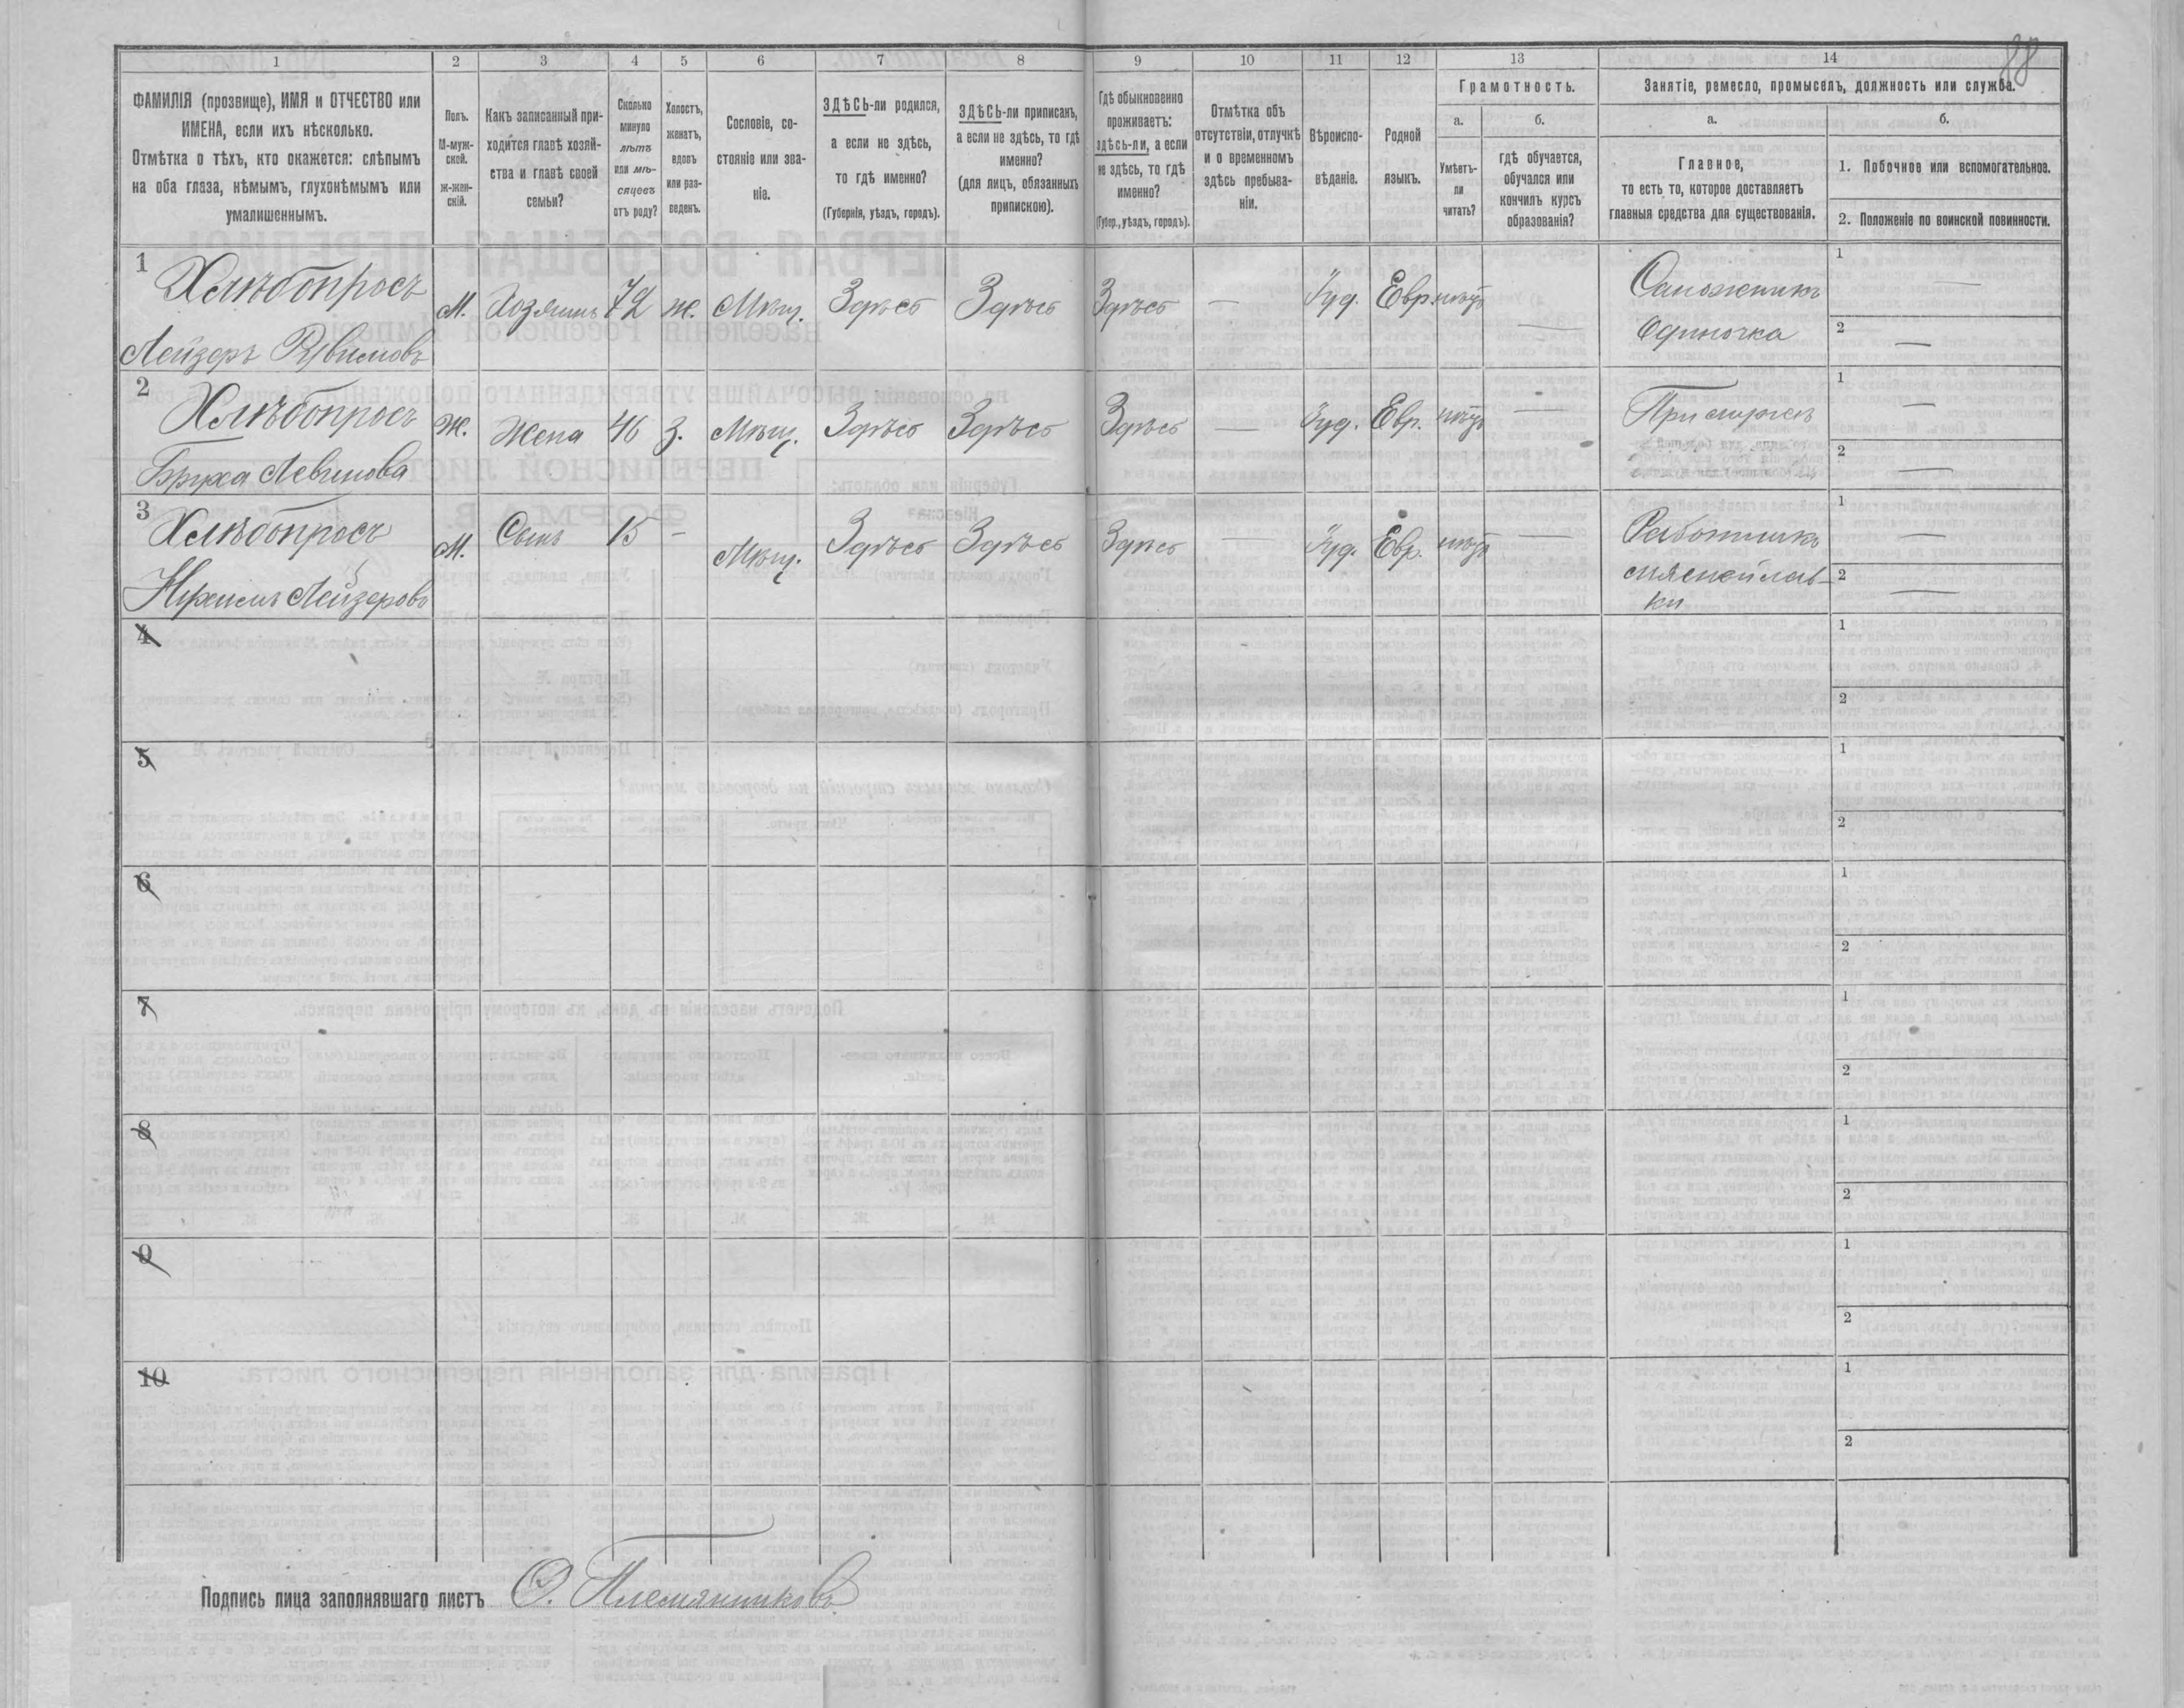 88
1 2 3 4 5 6 7 8 9 10 11 12 13 14
ФАМИЛІЯ (прозвище), ИМЯ и ОТЧЕСТВО или
ИМЕНА, если ихъ нѣсколько.
Отмѣтка о тѣхъ, кто окажется: слѣпымъ
на оба глаза, нѣмымъ, глухонѣмымъ или
умалишеннымъ.
Полъ.
М-муж-
ской.
ж-жен-
скій.
Какъ записанный при-
ходится главѣ хозяй-
ства и главѣ своей
семьи?
Сколько
минуло
лѣтъ
или мѣ-
сяцевъ
отъ роду?
Холостъ,
женатъ,
вдовъ
или раз-
веденъ.
Сословіе, со-
стояніе или зва-
ніе.
ЗДѢСЬ-ли родился,
а если не здѣсь,
то гдѣ именно?
(Губернія, уѣздъ, городъ).
ЗДѢСЬ-ли приписанъ,
а если не здѣсь, то гдѣ
именно?
(для лицъ, обязанныхъ
припискою).
Гдѣ обыкновенно
проживаетъ:
здѣсь-ли, а если
не здѣсь, то гдѣ
именно?
(Губер., уѣздъ, городъ).
Отмѣтка объ
отсутствіи, отлучкѣ
и о временномъ
здѣсь пребыва-
ніи.
Вѣроиспо-
вѣданіе.
Родной
языкъ.
Грамотность.
а.
Умѣетъ-
ли
читать?
б.
гдѣ обучается,
обучался или
кончилъ курсъ
образованія?
Занятіе, ремесло, промыселъ, должность или служба.
а.
Главное,
то есть то, которое доставляетъ
главныя средства для существованія.
б.
1. Побочное или вспомогательное.
2. Положеніе по воинской повинности.
1
Хлѣбопросъ
Лейзеръ Рувимовъ
М. Хозяинъ 72 ж. Мѣщ. Здѣсь Здѣсь Здѣсь — Іуд. Евр. нѣтъ —
Сапожникъ
Одиночка
1 —
2 —
2
Хлѣбопросъ
Бруха Левинова
Ж. Жена 46 З. Мѣщ. Здѣсь Здѣсь Здѣсь — Іуд. Евр. нѣтъ —
При мужѣ
1 —
2 —
3
Хлѣбопросъ
Лейзеровъ
М. Сынъ 15 - Мѣщ. Здѣсь Здѣсь Здѣсь — Іуд. Евр. нѣтъ —
Работникъ
мясной лав-
ки
1 —
2 —
4
1
2
5
1
2
6
1
2
7
1
2
8
1
2
9
1
2
10
1
2
Подпись лица заполнявшаго листъ О. Племянниковъ